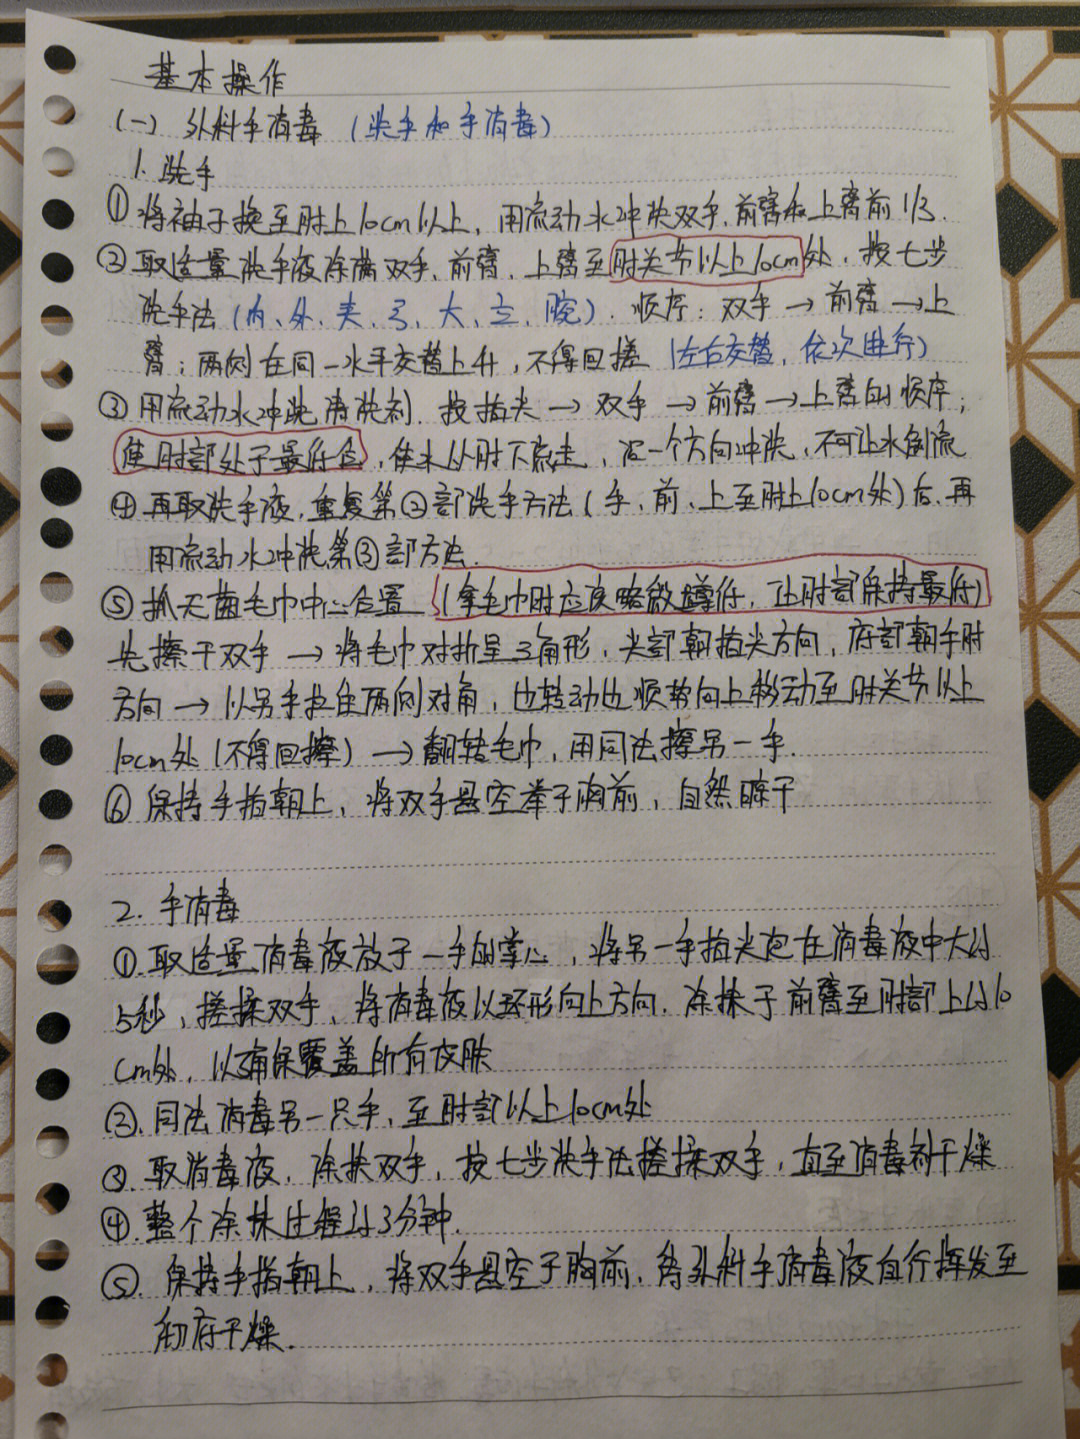 基本操作
(一) 外科手消毒 (洗手和手消毒)
1. 洗手
① 将袖子挽至肘上10cm以上，用流动水冲洗双手、前臂和上臂前1/3.
② 取适量洗手液涂满双手、前臂、上臂至肘关节以上10cm处，按七步
洗手法 (内、外、夹、弓、大、立、腕). 顺序：双手 → 前臂 → 上
臂；两侧在同一水平交替上升，不得回搓 (左右交替，依次进行)
③ 用流动水冲洗清洗剂. 按指尖 → 双手 → 前臂 → 上臂的顺序；
使肘部处于最低位，使水从肘下流走，沿一个方向冲洗，不可让水倒流
④ 再取洗手液，重复第②部洗手方法 (手、前、上至肘上10cm处) 后，再
用流动水冲洗第③部方法.
⑤ 抓无菌毛巾中心位置 (拿毛巾时应该略微蹲低，让肘部保持最低)
先擦干双手 → 将毛巾对折呈三角形，尖部朝指尖方向，底部朝手肘
方向 → 以另手拉住两侧对角，边转动边顺势向上移动至肘关节以上
10cm处 (不得回擦) → 翻转毛巾，用同法擦另一手.
⑥ 保持手指朝上，将双手悬空举于胸前，自然晾干
2. 手消毒
①. 取适量消毒液放于一手的掌心，将另一手指尖泡在消毒液中大约
5秒，搓揉双手，将消毒液以环形向上方向，涂抹于前臂至肘部上约10
cm处，以确保覆盖所有皮肤
②. 同法消毒另一只手，至肘部以上10cm处
③. 取消毒液，涂抹双手，按七步洗手法搓揉双手，直至消毒剂干燥
④. 整个涂抹过程约3分钟.
⑤. 保持手指朝上，将双手悬空于胸前，待外科手消毒液自行挥发至
彻底干燥.